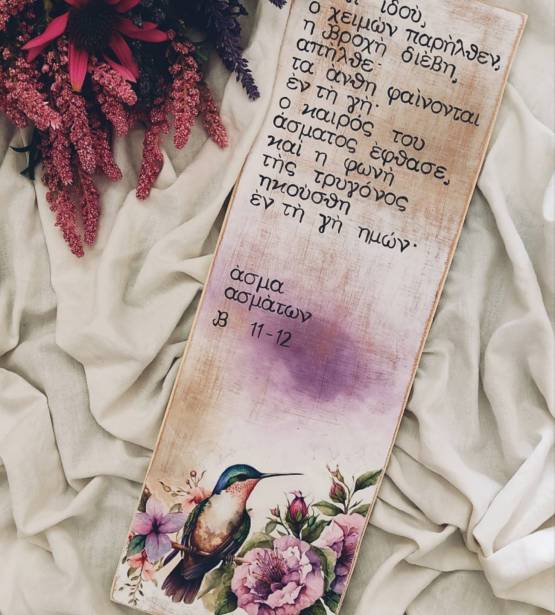 ιδού,
ο χειμών παρήλθεν,
η βροχή διέβη,
απήλθε·
τα άνθη φαίνονται
ἐν τῇ γῇ·
ο καιρός του
ἀσματος ἐφθασε,
καὶ η φωνή
τῆς τρυγόνος
ηκούσθη
ἐν τῇ γῇ ημών·
ἀσμα
ασμὰτων
Β 11-12